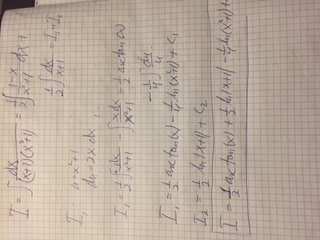 I = ∫ dx/((x+1)(x²+1)) = 1/2 ∫ (1-x)/(x²+1) dx +
1/2 ∫ dx/(x+1) = I₁+I₂
I₁ u=x²+1
du=2x dx
I₁ = 1/2 ∫ dx/(x²+1) - 1/2 ∫ xdx/(x²+1) = 1/2 arctan(x)
- 1/4 ∫ du/u
I₁ = 1/2 arctan(x) - 1/4 ln(x²+1) + C₁
I₂ = 1/2 ln|x+1| + C₂
I = 1/2 arctan(x) + 1/2 ln|x+1| - 1/4 ln(x²+1) +